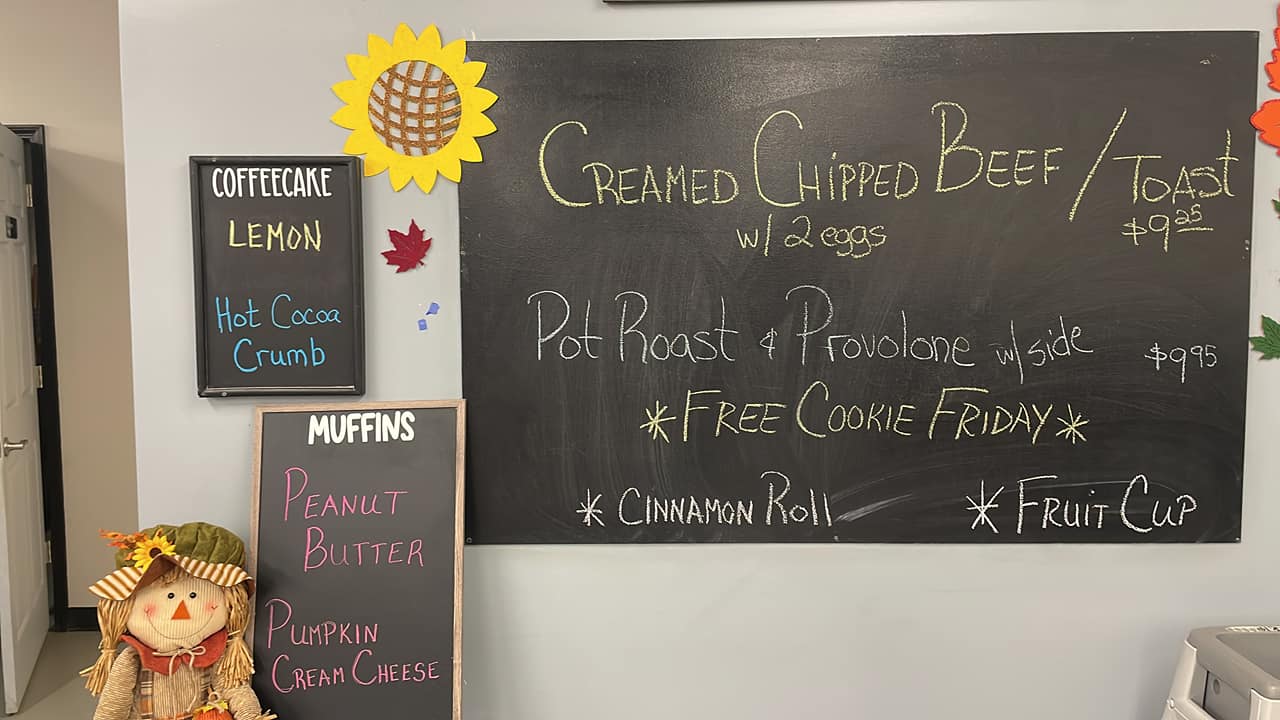 COFFEECAKE
LEMON
Hot Cocoa
Crumb
MUFFINS
PEANUT
BUTTER
PUMPKIN
CREAM CHEESE
CREAMED CHIPPED BEEF / TOAST
w/ 2 eggs $9.25
Pot Roast & Provolone w/ side $9.95
*FREE COOKIE FRIDAY*
* CINNAMON Roll * FRUIT CUP